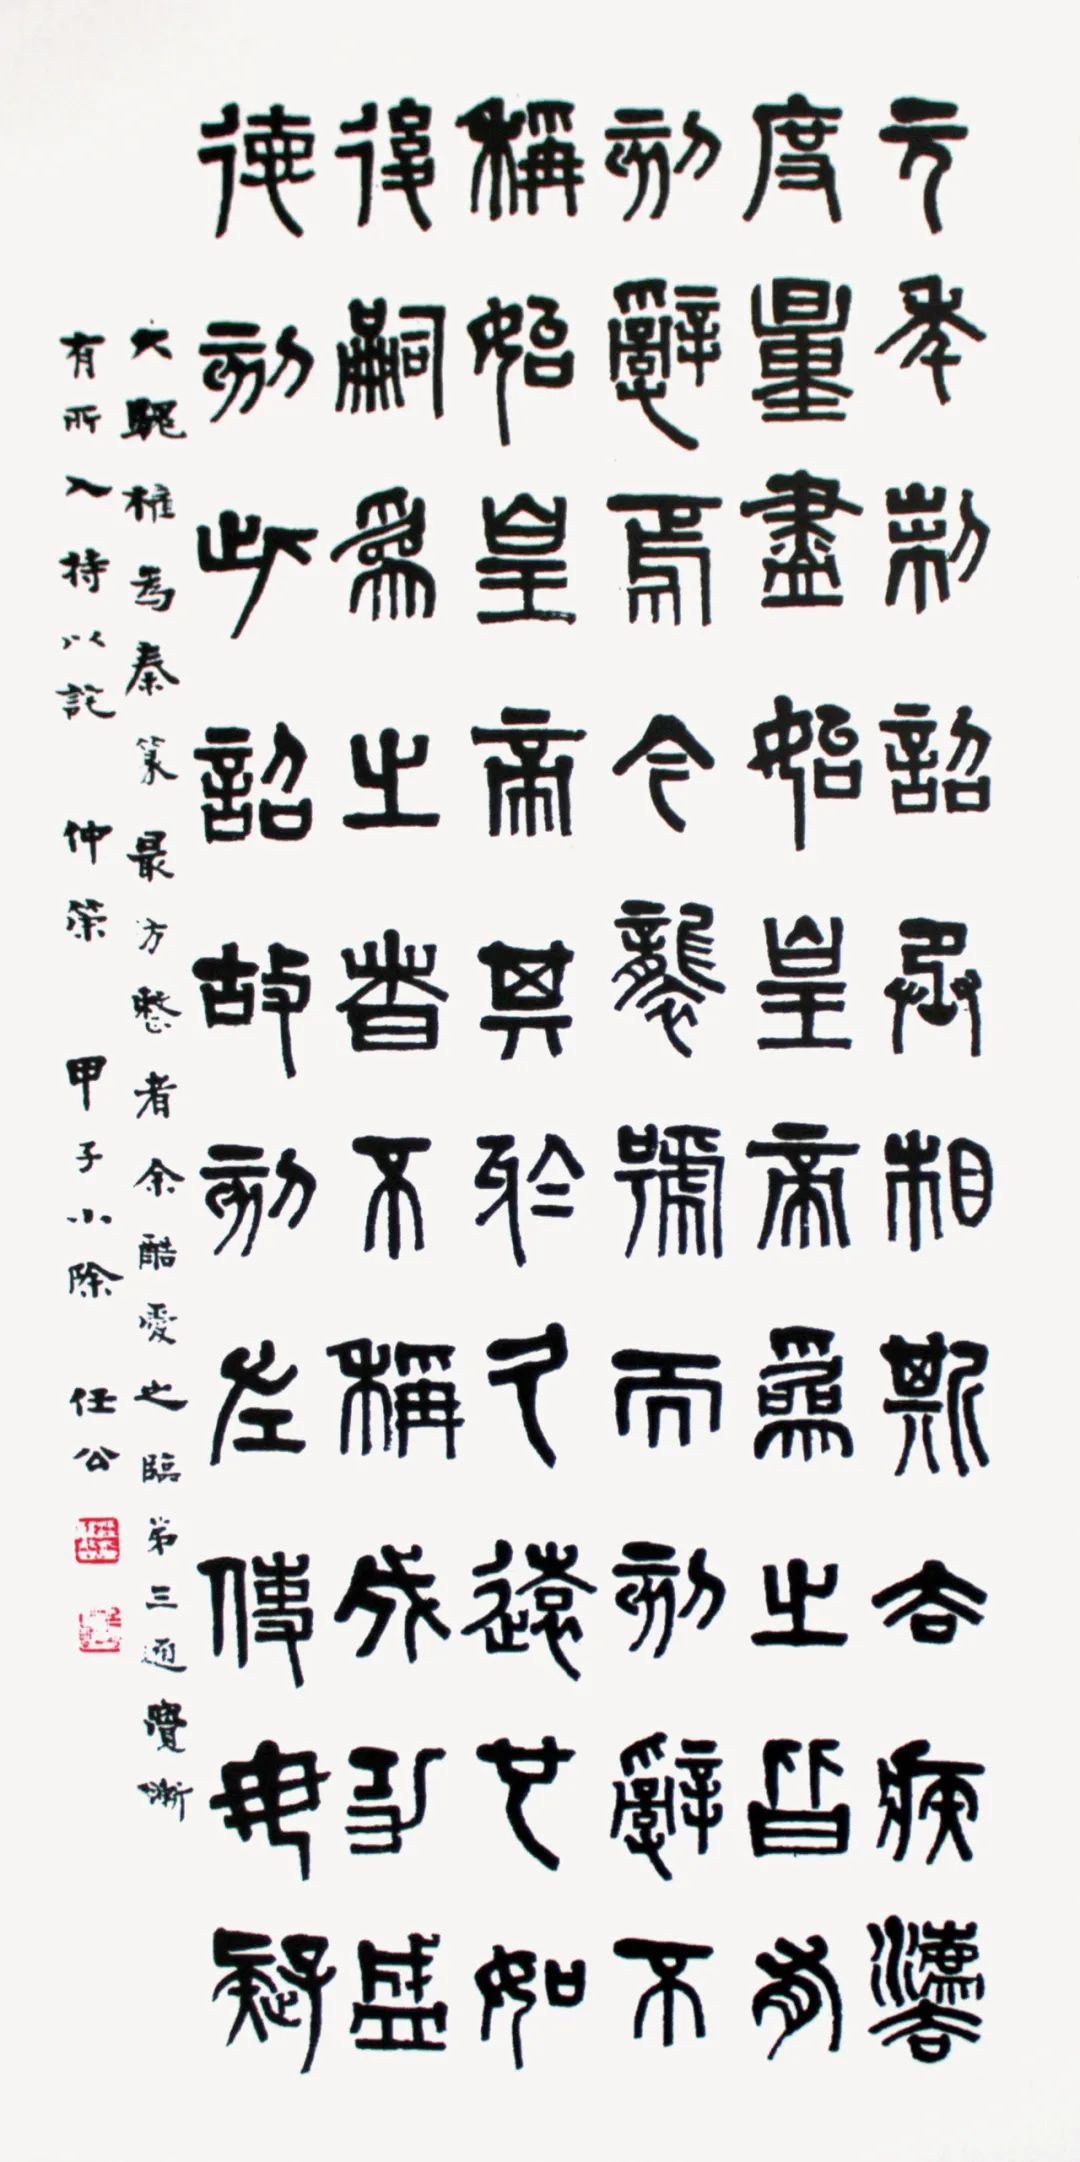 元年制詔丞相斯去疾灋
度量盡始皇帝爲之皆有
刻辭焉今襲號而刻辭不
稱始皇帝其於久遠也如
後嗣爲之者不稱成功盛
德刻此詔故刻左使毋疑
大騩權為秦篆最方整者余酷愛之臨第三通覺漸
有所入持以 仲策 甲子小除 任公